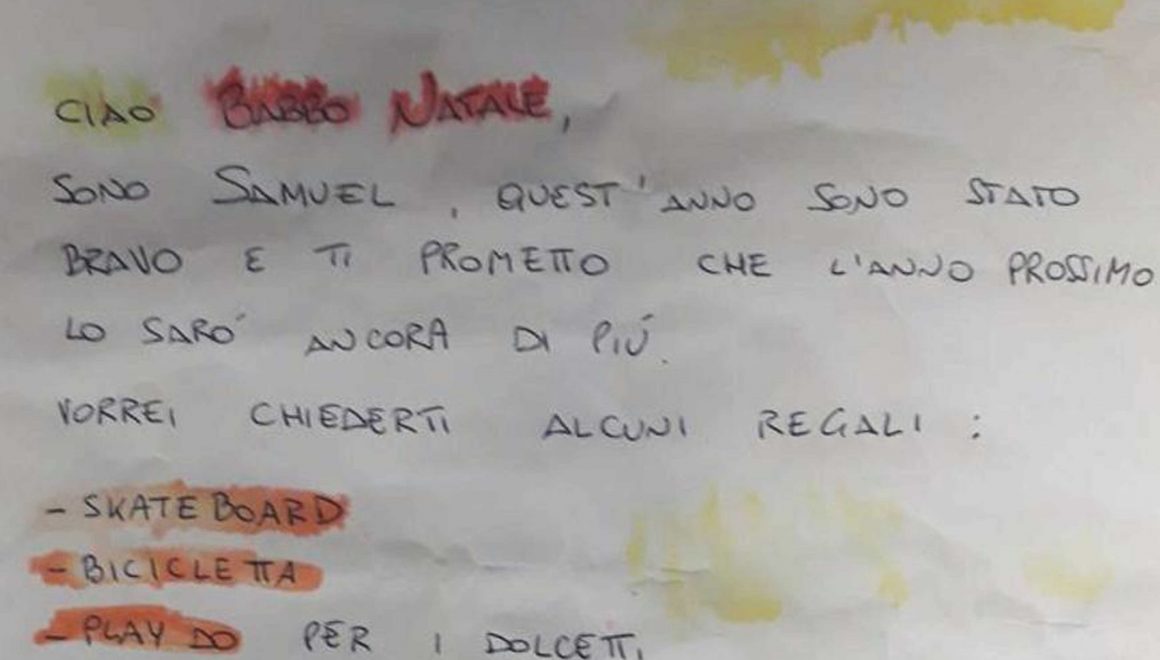 CIAO BABBO NATALE,
SONO SAMUEL, QUEST'ANNO SONO STATO
BRAVO E TI PROMETTO CHE L'ANNO PROSSIMO
LO SARO' ANCORA DI PIÚ.
VORREI CHIEDERTI ALCUNI REGALI:
- SKATE BOARD
- BICICLETTA
- PLAY DO PER I DOLCETTI